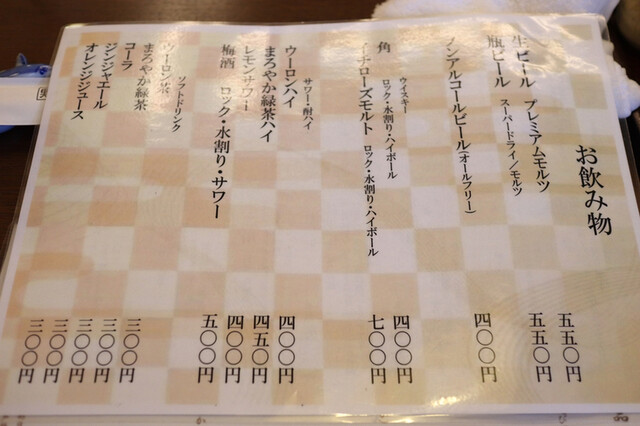 お飲み物
生ビール プレミアムモルツ 五五〇円
瓶ビール スーパードライ／モルツ 五五〇円
ノンアルコールビール(オールフリー) 四〇〇円
ウイスキー
角 ロック・水割り・ハイボール 四〇〇円
イチローズモルト ロック・水割り・ハイボール 七〇〇円
サワー・酎ハイ
ウーロンハイ 四〇〇円
まろやか緑茶ハイ 四五〇円
レモンサワー 四〇〇円
梅酒 ロック・水割り・サワー 五〇〇円
ソフトドリンク
ウーロン茶 三〇〇円
まろやか緑茶 三〇〇円
コーラ 三〇〇円
ジンジャエール 三〇〇円
オレンジジュース 三〇〇円